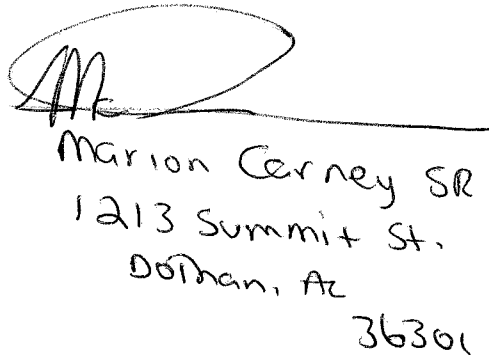 Marion Carney SR
1213 Summit St.
Dothan, AL
36301